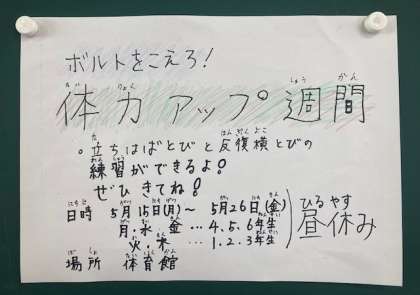 ボルトをこえろ!
体力アップ週間
。立ちはばとびと反復横とびの
練習ができるよ!
ぜひきてね!
日時 5月15日(月)~5月26日(金)
月・水 金…4.5.6年生
火・木…1.2.3年生
昼休み
場所 体育館